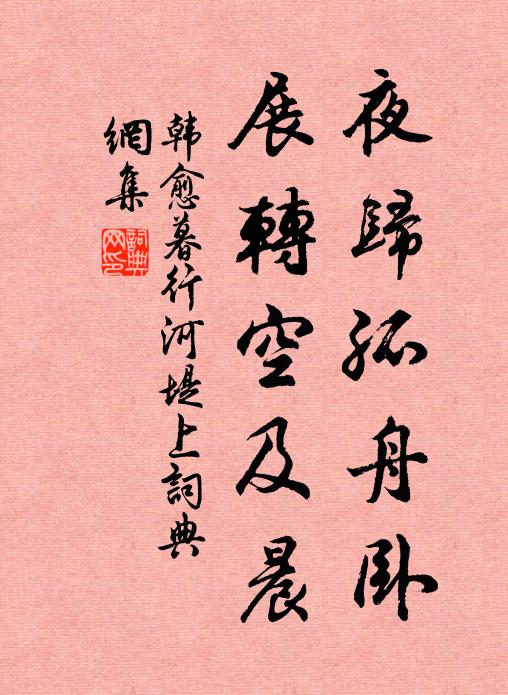 夜歸孤舟臥
展轉空及晨
韓愈暮行河堤上詞典
網集
詞典網印